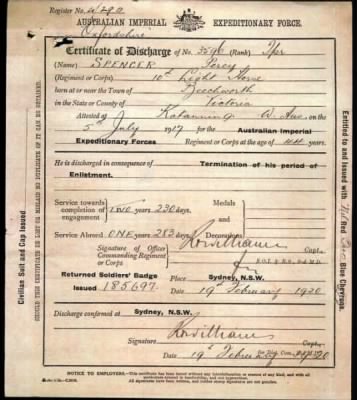 Register No.
AUSTRALIAN IMPERIAL EXPEDITIONARY FORCE.
Oxfordshire
Certificate of Discharge of No. 3596 (Rank)
(Name) SPENCER Percy
(Regiment or Corps) 10th Light Horse
born at or near the Town of Beechworth
in the State or County of Victoria
Attested at Katanning W. Aus. on the
5th July 1917 for the Australian Imperial
Expeditionary Forces Regiment or Corps at the age of 44 years.
He is discharged in consequence of Termination of his period of
Enlistment.
Service towards completion of engagement TWO years 230 days.
Medals and Decorations
Service Abroad ONE years 283 days.
Signature of Officer Commanding Regiment or Corps
Capt.
Returned Soldiers' Badge
Issued 185697.
Sydney, N.S.W.
19th February 1920
Discharge confirmed at Sydney, N.S.W.
Signature
Capt.
Date 19 February 1920
NOTICE TO EMPLOYERS:—
Civilian Suit and Cap Issued
SHOULD THIS CERTIFICATE BE LOST OR MISLAID NO DUPLICATE OF IT CAN BE OBTAINED.
Entitled to and issued with Nil Red Blue Chevrons.